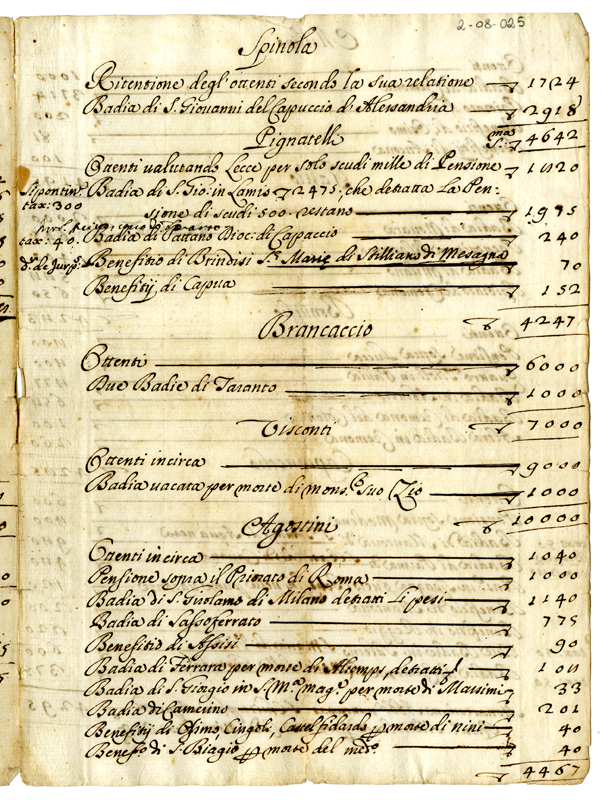 2-08-025
Spinola
Ritentione degl'ottenti secondo la sua relatione 1724
Badia di S. Giovanni del Capuccio di Alessandria 2918
4642
Pignatelli
Ottenti valutando Lecce per solo scudi mille di Pensione 1020
Sipontin.
tax: 300
Badia di S. Gio: in Lamis 2475, che detratta La Pen:
sione di scudi 500. restano 1975
tax: 40.
Badia di Pattano Dioc: di Capaccio 240
Benefitio di Brindisi S. Marie di Stilliano di Mesagna 70
Benefitij di Capua 152
4247
Brancaccio
Ottenti 6000
Due Badie di Taranto 1000
7000
Visconti
Ottenti incirca 9000
Badia vacata per morte di mons. suo Zio 1000
10000
Agostini
Ottenti incirca 1040
Pensione sopra il Priorato di Roma 1000
Badia di S. Girolamo di Milano detratti li pesi 1140
Badia di Sassoferrato 775
Benefitio di Assisi 90
Badia di Ferrara per morte di Altemps detratti
Badia di S. Giorgio in per morte di Massimi 33
Badia di Camerino 201
Benefitij di Osimo, Cingoli, Castelfidardo morte di nini 40
di S. Biagio morte del med.o 40
4467